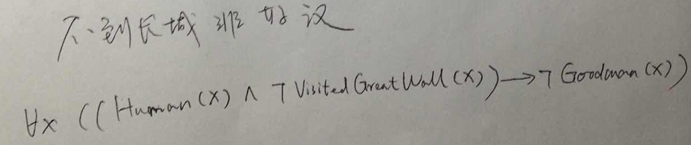 不到长城非好汉
∀x ((Human(x) ∧ ¬VisitedGreatWall(x))→¬Goodman(x))